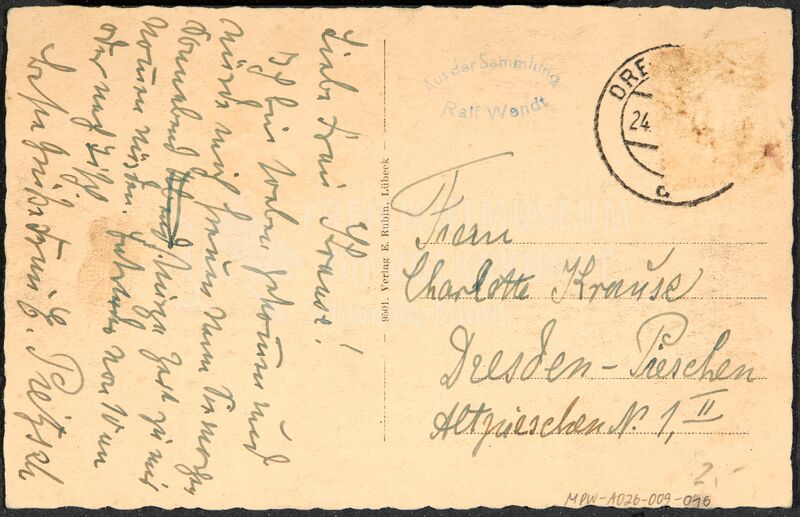 Liebe Frau Krause!
Ich bin soeben gekommen und
würde mich freuen wenn Sie morgen
Sonnabend kurze Zeit zu mir
kommen würden.
oder nach
Beste Grüße Frau E. Pietzsch
Aus der Sammlung
Ralf Wendt
DRE
24.
a
9501. Verlag E. Rubin, Lübeck
Frau
Charlotte Krause
Dresden-Pieschen
Altpieschen N. 1, II
2,-
MPW-A026-009-096